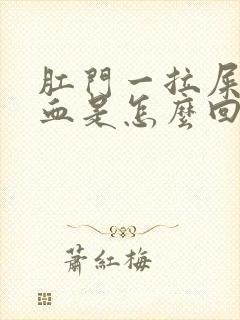 肛門一拉屎
血是怎麼回
蕭紅梅